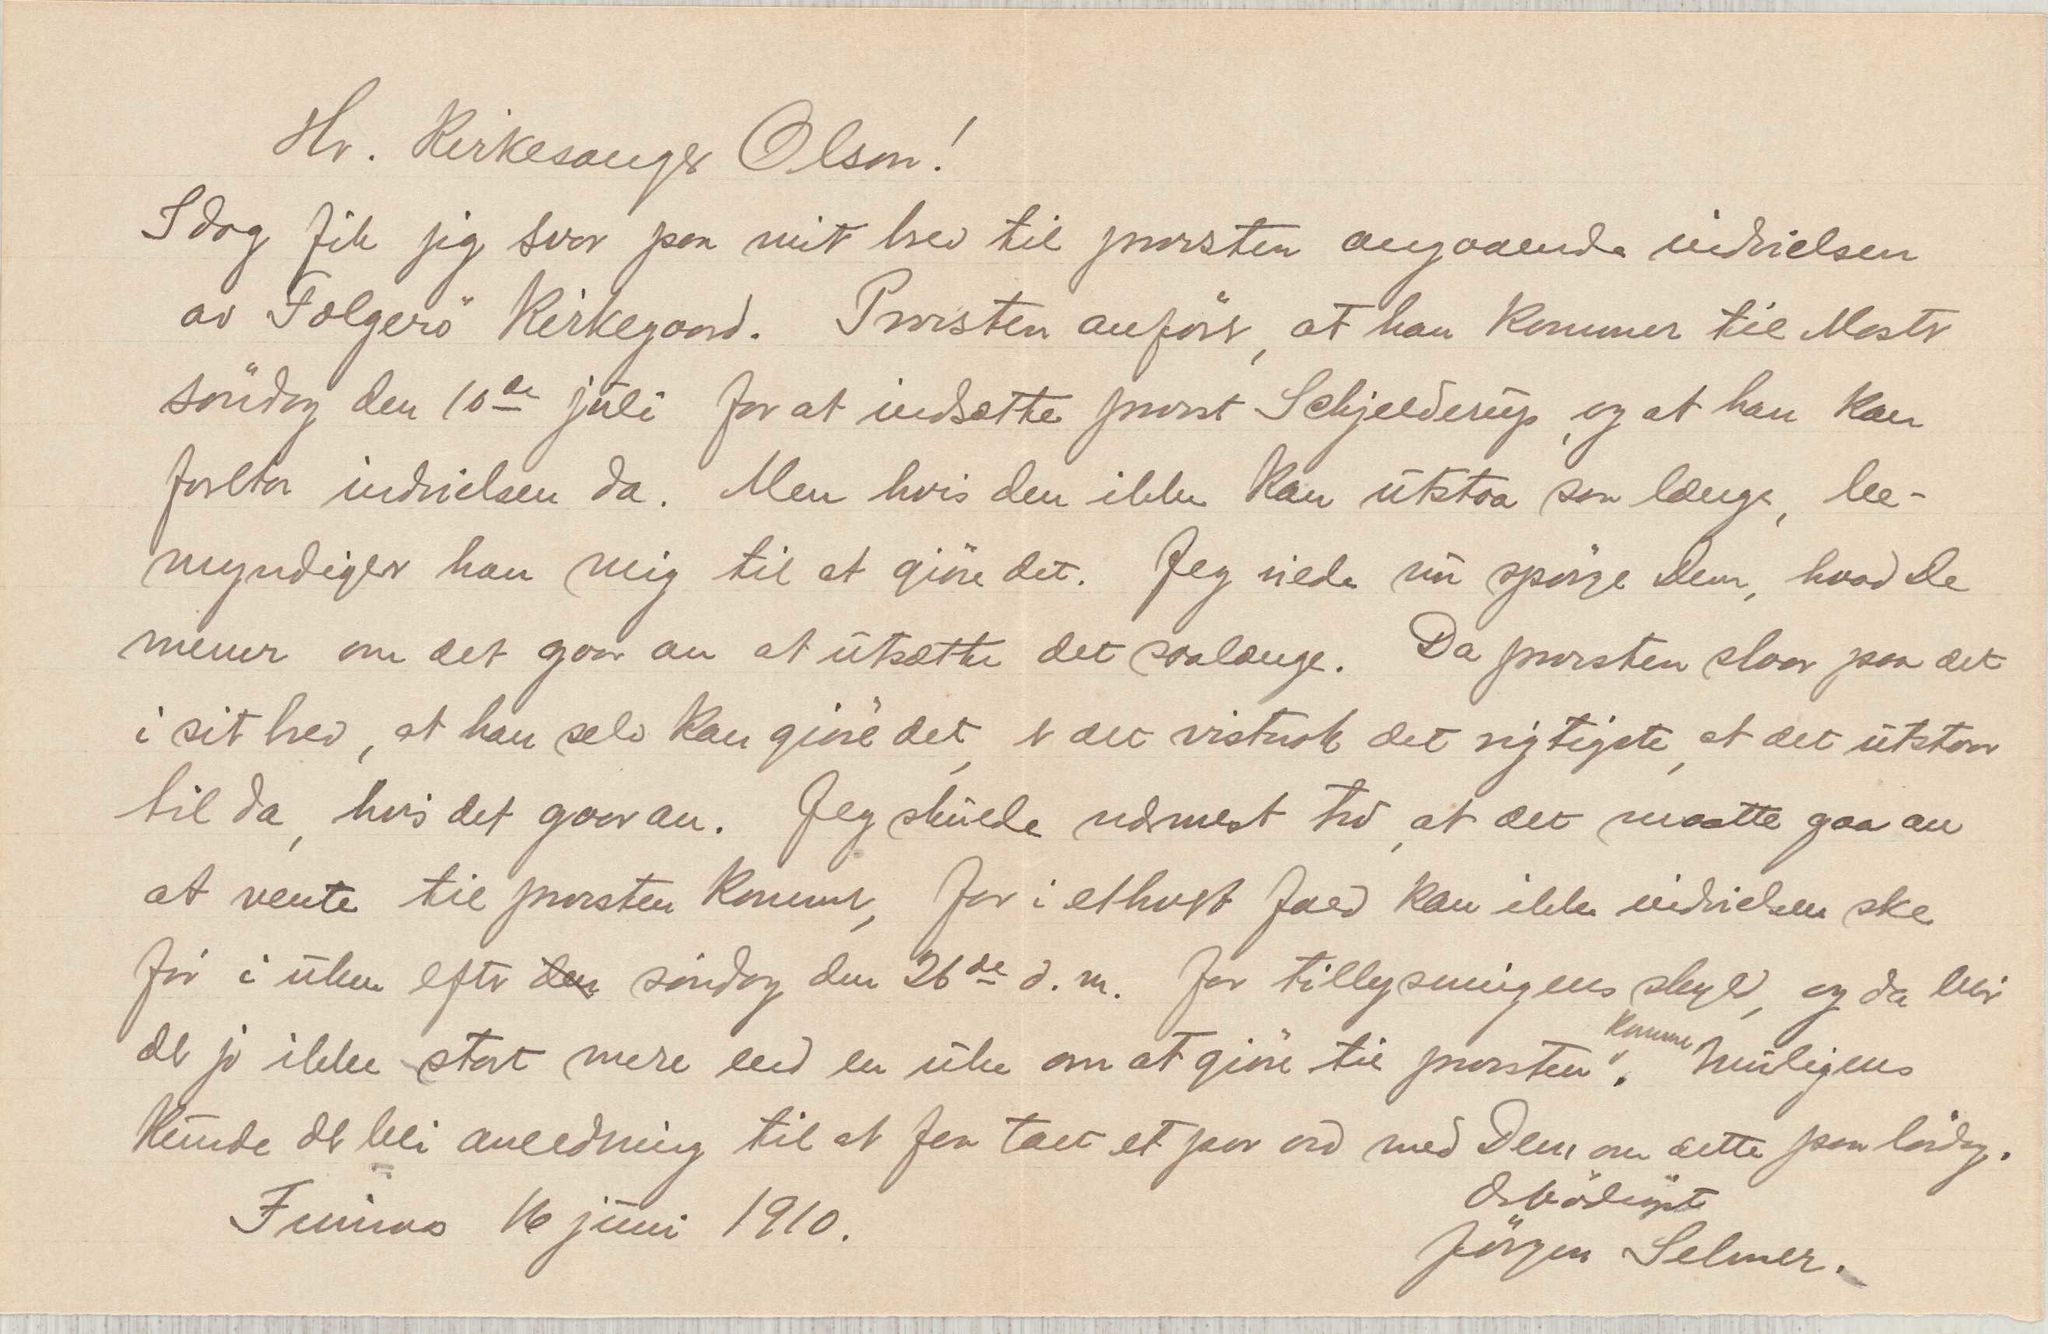 Hr. Kirkesanger Olson!
Idag fik jeg svar paa mit brev til provsten angaaende indvielsen
av Folgerö Kirkegaard. Provsten anförer, at han kommer til Moster
söndag den 10de juli for at indsætte provst Schjelderup, og at han kan
foreta indvielsen da. Men hvis den ikke kan utstaa saa længe, be-
myndiger han mig til at gjöre det. Jeg vilde nu spörge Dem, hvad De
mener om det gaar an at utsætte det saalænge. Da provsten slaar paa det
i sit brev, at han selv kan gjöre det, er det vistnok det rigtigste, at det utstaar
til da, hvis det gaar an. Jeg skulde nærmest tro, at det maatte gaa an
at vente til provsten kommer, for i ethvert fald kan ikke indvielsen ske
för i uken efter den söndag den 26de d. m. for tillysningens skyld, og da blir
det jo ikke stort mere end en uke om at gjöre til provsten kommer. Muligens
kunde det bli anledning til at faa talt et par ord med Dem om dette paa lördag.
Finnaas 16 juni 1910.
Ærbödigst
Jörgen Selmer.